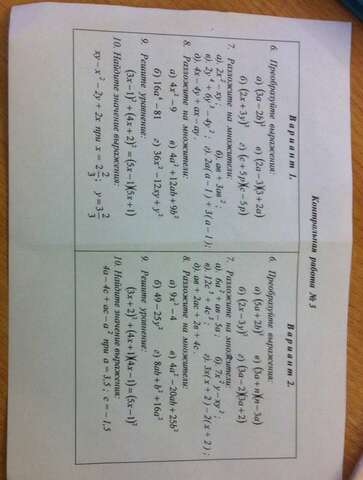 Контрольная работа № 3
Вариант 1.
6. Преобразуйте выражения:
а) (3a − 2b)² в) (2a − 3)(3 + 2a)
б) (2x + 3y)² г) (c + 5p)(c − 5p)
7. Разложите на множители:
а). 2x² − xy ; б). an + 3an² ;
в). 2y⁴ + 6y³ − 4y² ; г). 2a(a − 1) + 3(a − 1) ;
д). 4x − 4y + ax − ay ;
8. Разложите на множители:
а) 4x² − 9 в) 4a² + 12ab + 9b²
б) 16a⁴ − 81 г) 36x² − 12xy + y²
9. Решите уравнение:
(3x − 1)² + (4x + 2)² = (5x − 1)(5x + 1)
10. Найдите значение выражения:
xy − x² − 2y + 2x при x = 2 2/3 ; y = 3 2/3
Вариант 2.
6. Преобразуйте выражения:
а) (5a + 2b)² в) (3a + n)(n − 3a)
б) (2x − 3y)² г) (3a − 2)(3a + 2)
7. Разложите на множители:
а). 6a² + an − 5a ; б). 7x² y − xy² ;
в). 12c³ + 4c² ; г). 3x(x + 2) − 2(x + 2) ;
д). an + 2ac + 2n + 4c
8. Разложите на множители:
а) 9x² − 4 в) 4a² − 20ab + 25b²
б) 49 − 25y² г) 8ab + b² + 16a²
9. Решите уравнение:
(3x + 2)² + (4x + 1)(4x − 1) = (5x − 1)²
10. Найдите значение выражения:
4a − 4c + ac − a² при a = 3,5 ; c = −1,5